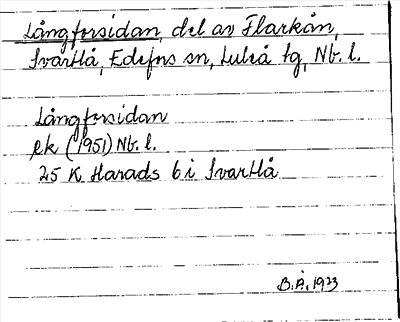 Långforsidan, del av Flarkån,
Svartlå, Edefors sn, Luleå tg, Nb. l.
Långforsidan
ek (1951) Nb. l.
25 K Harads 6 i Svartlå
B.Å. 1973